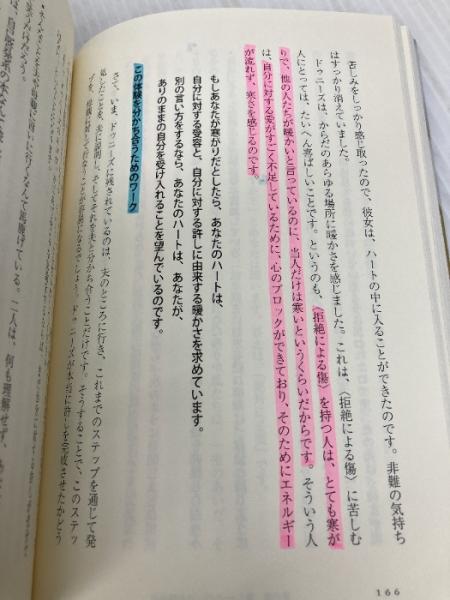 苦しみをしっかり感じ取ったので、彼女は、ハートの中に入ることができたのです。非難の気持ち
はすっかり消えていました。
ドゥニーズは、からだのあらゆる場所に暖かさを感じました。これは、〈拒絶による傷〉に苦しむ
人にとっては、たいへん喜ばしいことです。というのも、〈拒絶による傷〉を持つ人は、とても寒が
りで、他の人たちが暖かいと言っているのに、当人だけは寒いというくらいだからです。そういう人
は、自分に対する愛がすごく不足しているために、心のブロックができており、そのためにエネルギー
が流れず、寒さを感じるのです。
もしあなたが寒がりだとしたら、あなたのハートは、
自分に対する受容と、自分に対する許しに由来する暖かさを求めています。
別の言い方をするなら、あなたのハートは、あなたが、
ありのままの自分を受け入れることを望んでいるのです。
この体験を分かち合うためのワーク
さて、いま、ドゥニーズに残されているのは、夫のところに行き、これまでのステップを通じて発
見したことを夫に説明し、そしてそれを夫と分かち合うことだけです。そうすることで、このステッ
プを、
ドゥニーズが本当に許しを完成させたかどう
二人は、何も理解せず、
166